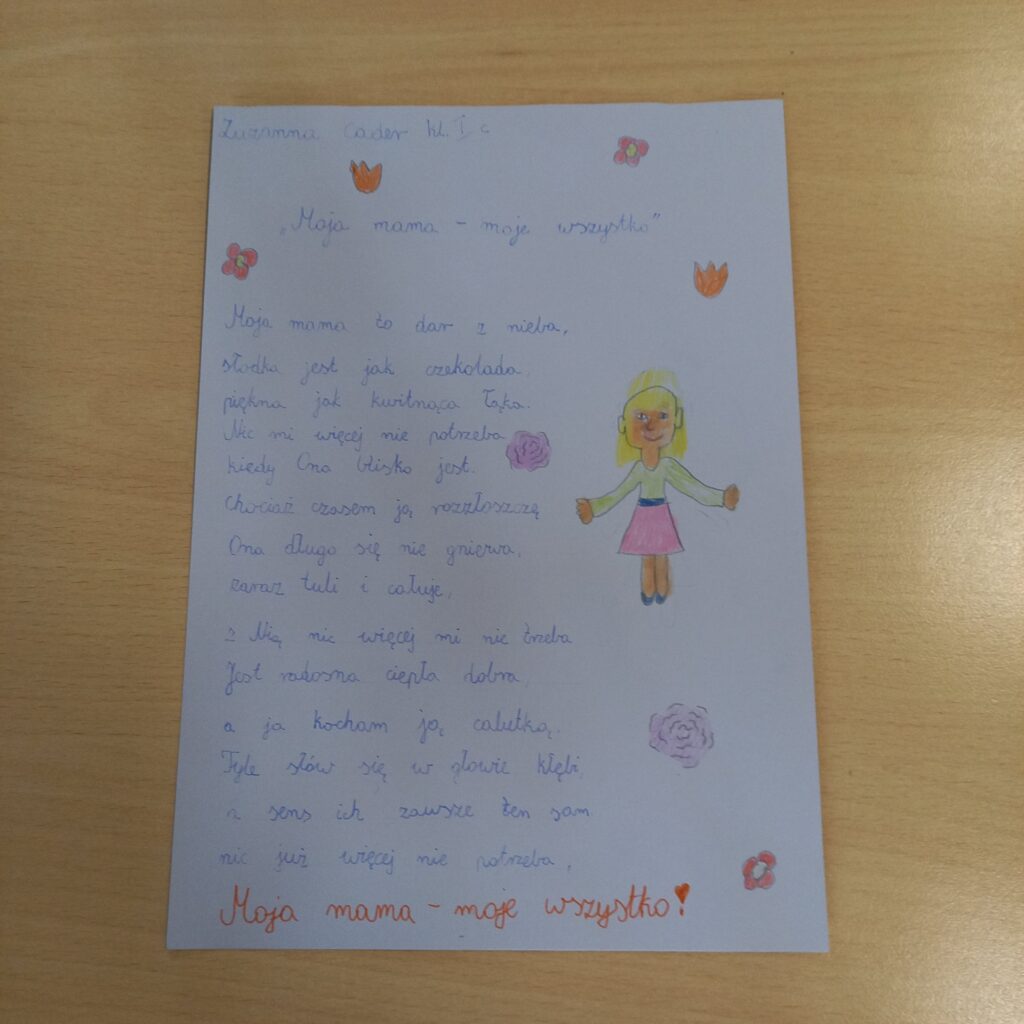 Zuzanna Cader kl. I c
„Moja mama - moje wszystko”
Moja mama to dar z nieba,
słodka jest jak czekolada,
piękna jak kwitnąca łąka.
Nic mi więcej nie potrzeba
kiedy Ona blisko jest.
Chociaż czasem ją rozzłoszczę
Ona długo się nie gniewa,
zaraz tuli i całuje,
z Nią nic więcej mi nie trzeba
Jest radosna ciepła dobra,
a ja kocham ją calutką.
Tyle słów się w głowie kłębi,
a sens ich zawsze ten sam
nic już więcej nie potrzeba,
Moja mama - moje wszystko!